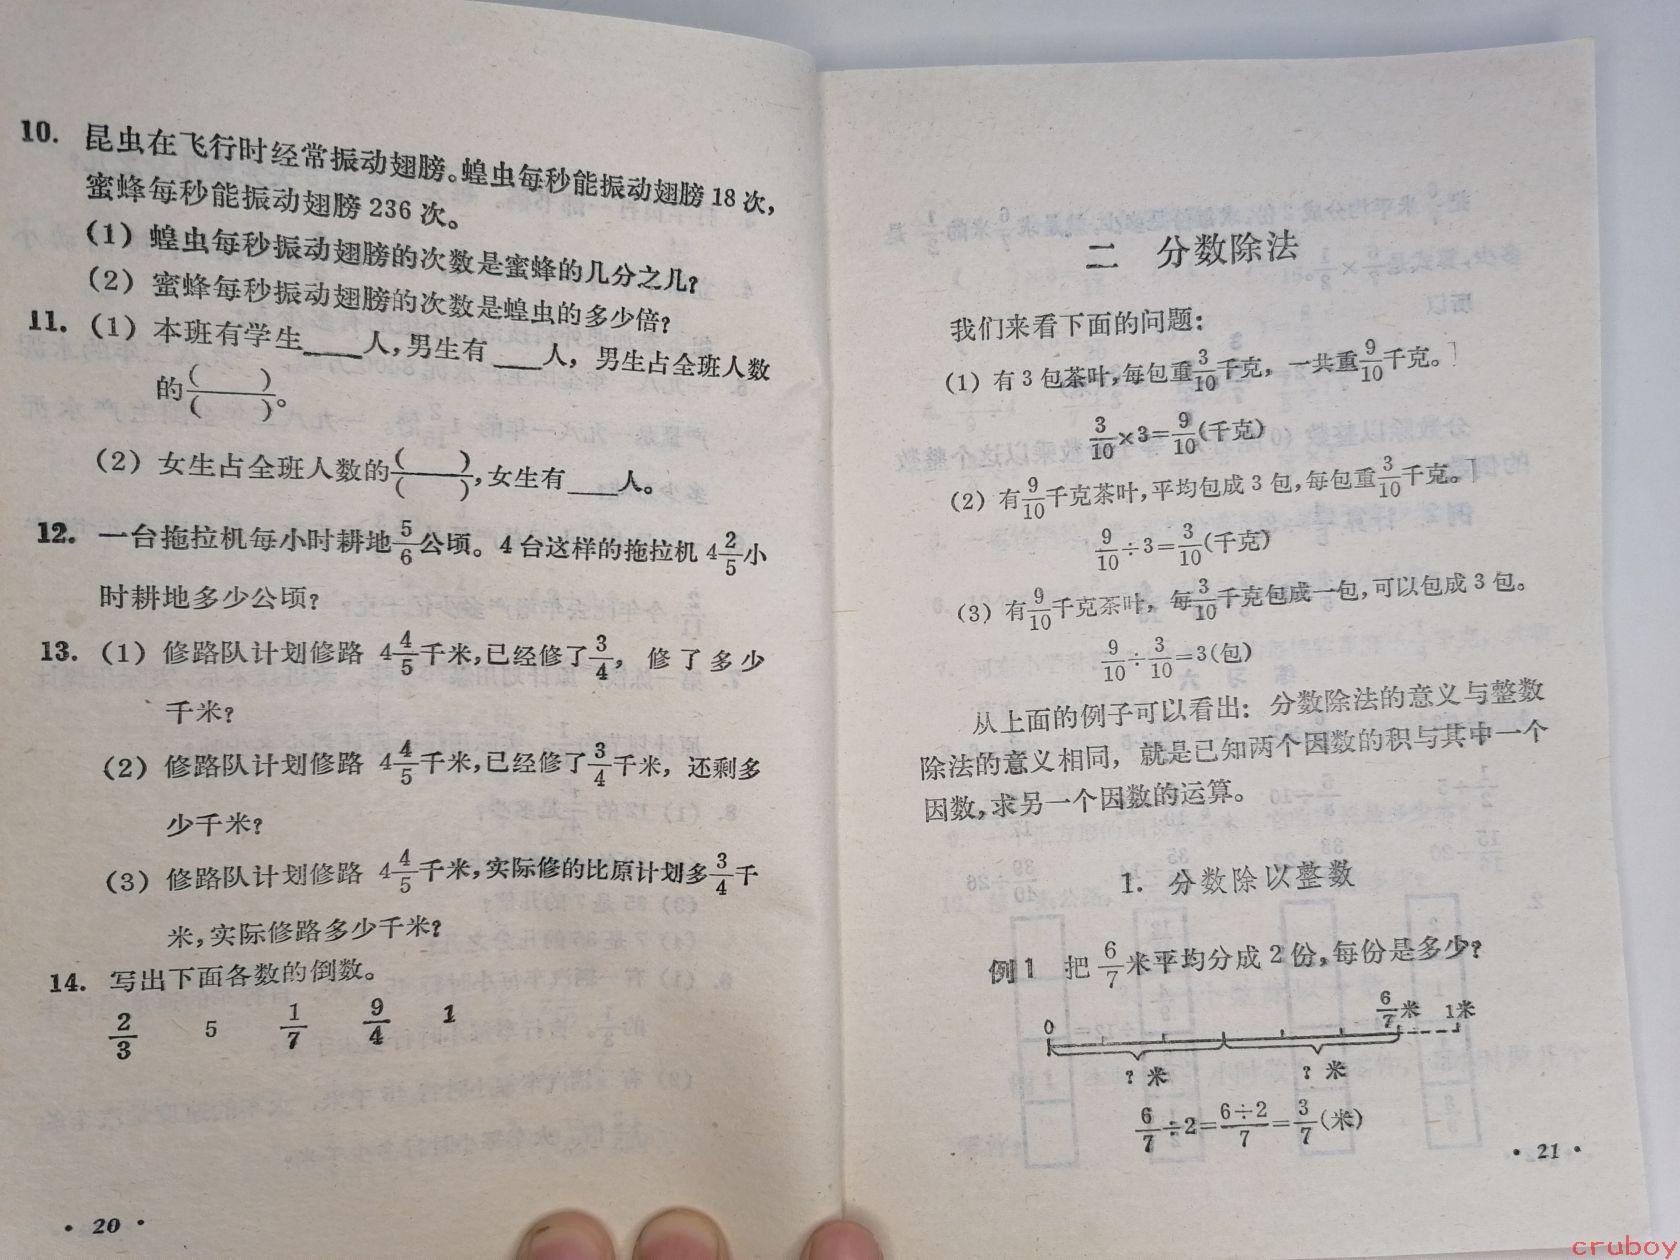 10. 昆虫在飞行时经常振动翅膀。蝗虫每秒能振动翅膀18次,
蜜蜂每秒能振动翅膀236次。
(1) 蝗虫每秒振动翅膀的次数是蜜蜂的几分之几?
(2) 蜜蜂每秒振动翅膀的次数是蝗虫的多少倍?
11. (1) 本班有学生____人,男生有____人, 男生占全班人数
的( )/( )。
(2) 女生占全班人数的( )/( ),女生有____人。
12. 一台拖拉机每小时耕地5/6公顷。4台这样的拖拉机 4 2/5小
时耕地多少公顷?
13. (1) 修路队计划修路 4 4/5千米,已经修了3/4, 修了多少
千米?
(2) 修路队计划修路 4 4/5千米,已经修了3/4千米, 还剩多
少千米?
(3) 修路队计划修路 4 4/5千米,实际修的比原计划多3/4千
米,实际修路多少千米?
14. 写出下面各数的倒数。
2/3 5 1/7 9/4 1
· 20 ·
二 分数除法
我们来看下面的问题:
(1) 有3包茶叶,每包重3/10千克, 一共重9/10千克。
3/10×3=9/10(千克)
(2) 有9/10千克茶叶,平均包成3包,每包重3/10千克。
9/10÷3=3/10(千克)
(3) 有9/10千克茶叶, 每3/10千克包成一包,可以包成3包。
9/10÷3/10=3(包)
从上面的例子可以看出: 分数除法的意义与整数
除法的意义相同, 就是已知两个因数的积与其中一个
因数,求另一个因数的运算。
1. 分数除以整数
例1 把6/7米平均分成2份,每份是多少?
0 6/7米 1米
?米 ?米
6/7÷2=(6÷2)/7=3/7(米)
· 21 ·
cruboy